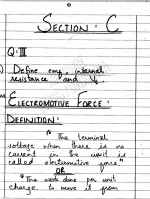 SECTION : C
Q:III
Define emf, internal
resistance and V
ELECTROMOTIVE FORCE:
DEFINITION:
"The terminal
voltage when there is no
current in the circuit is
called electromotive force"
OR
"The work done per unit
charge to move it from